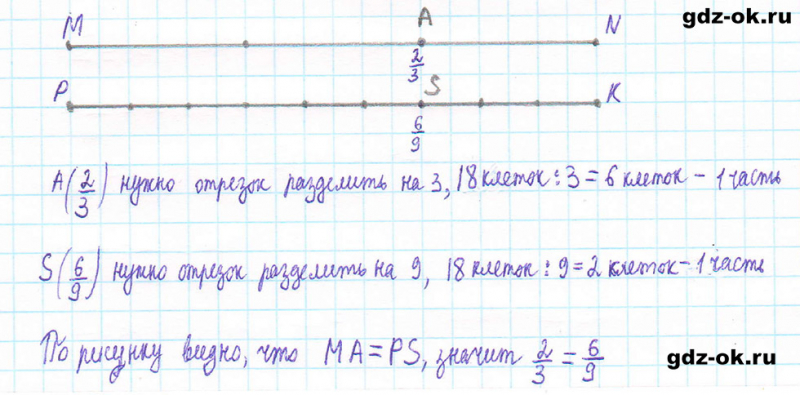 gdz-ok.ru
M A N
2/3
P S K
6/9
A(2/3) нужно отрезок разделить на 3, 18 клеток : 3 = 6 клеток - 1 часть
S(6/9) нужно отрезок разделить на 9, 18 клеток : 9 = 2 клеток - 1 часть
По рисунку видно, что MA = PS, значит 2/3 = 6/9
gdz-ok.ru